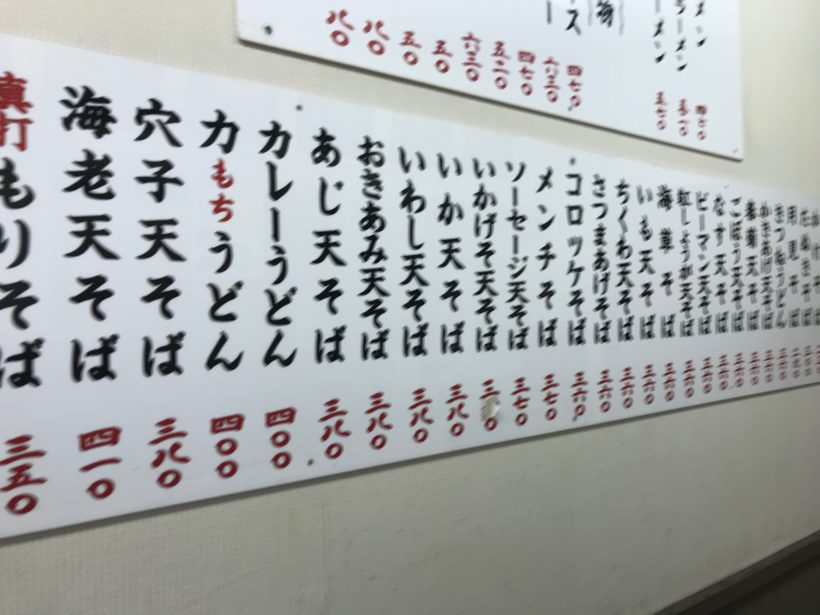 メン
ラーメン
ーメン
ース 四七〇
六三〇
四七〇
五二〇
六三〇
五〇
五〇
八〇
八〇
たぬきそば
月見そば
きつねうどん
かきあげ天そば 三六〇
春菊天そば 三六〇
ごぼう天そば 三六〇
なす天そば 三六〇
ピーマン天そば 三六〇
紅しょうが天そば 三六〇
海草そば 三六〇
いも天そば 三六〇
ちくわ天そば 三六〇
さつまあげそば 三六〇
コロッケそば 三六〇
メンチそば 三七〇
ソーセージ天そば 三七〇
いかげそ天そば
いか天そば 三八〇
いわし天そば 三八〇
おきあみ天そば 三八〇
あじ天そば 三八〇
カレーうどん 四〇〇
力もちうどん 四〇〇
穴子天そば 三八〇
海老天そば 四一〇
真打もりそば 三五〇